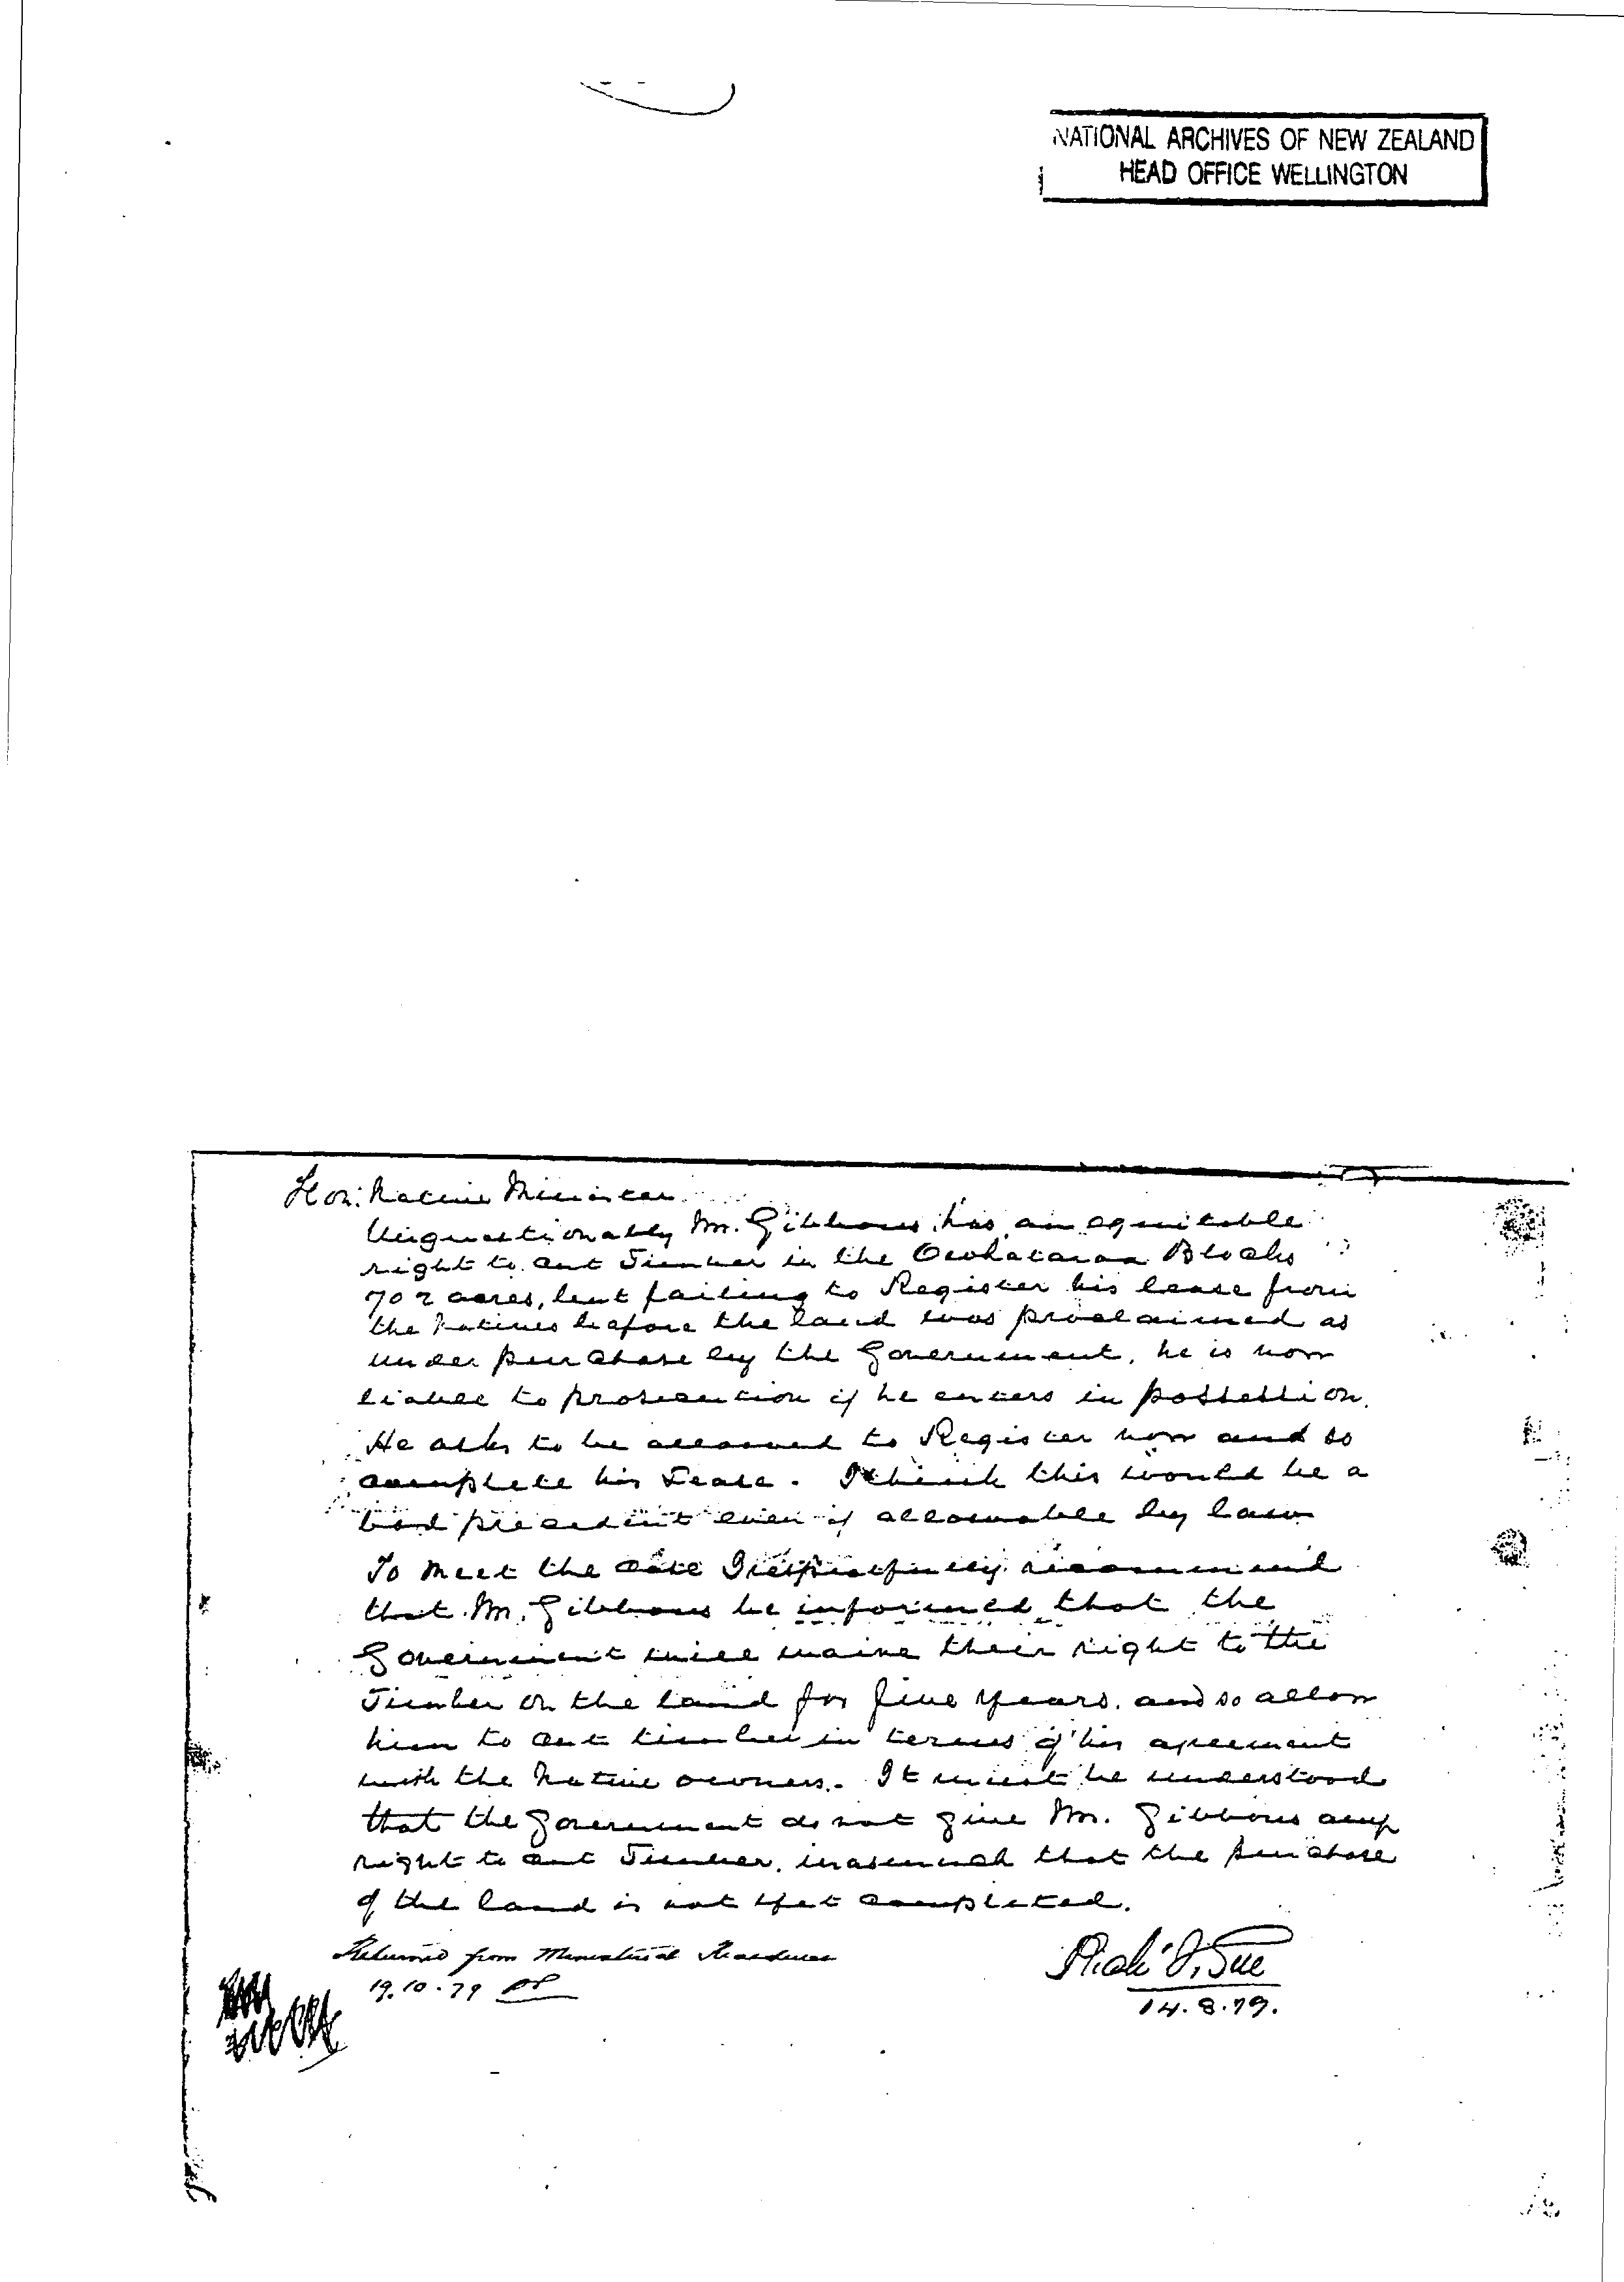 NATIONAL ARCHIVES OF NEW ZEALAND
HEAD OFFICE WELLINGTON
Hon: Native Minister
Unquestionably Mr. Gibbons has an equitable
right to cut Timber in the Blocks
702 acres, but failing to Register his lease from
the Natives before the land was proclaimed as
under purchase by the Government, he is now
liable to prosecution if he enters in possession.
He asks to be allowed to Register now and so
complete his Lease. I think this would be a
bad precedent even if allowable by law
To meet the case I respectfully recommend
that Mr. Gibbons be informed that the
Government will waive their right to the
Timber on the land for five years, and so allow
him to cut timber in terms of his agreement
with the Native owners. It must be understood
that the Government do not give Mr. Gibbons any
right to cut Timber, inasmuch that the purchase
of the land is not yet completed.
Returned from Ministerial
19.10.79
14.8.79.